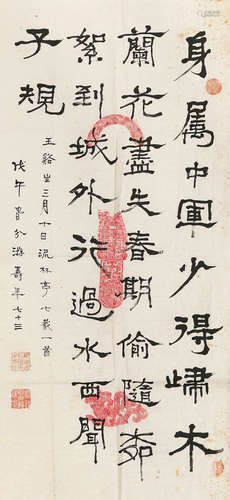 身屬中軍少得歸木
蘭花盡失春期偷隨柳
絮到城外行過水西聞
子規
玉谿生三月十日流杯亭七截一首
戊午春分游壽年七十三